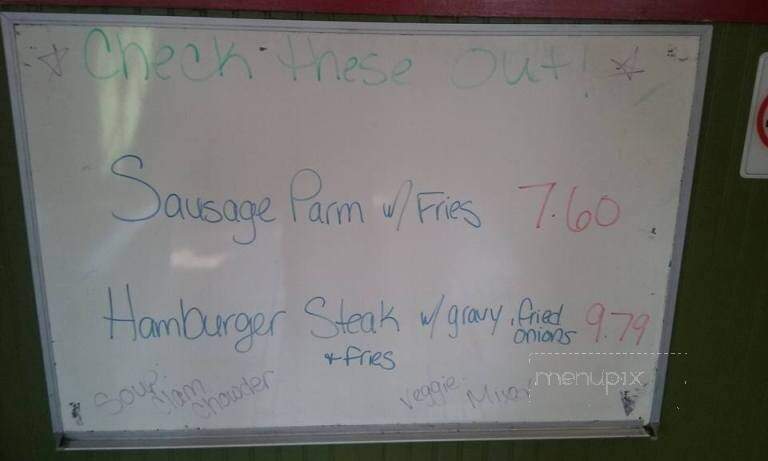 Check these out!
Sausage Parm w/ Fries 7.60
Hamburger Steak w/ gravy, fried onions 9.79
+ fries
Soup: Clam Chowder
Veggie: Mixed
menupix